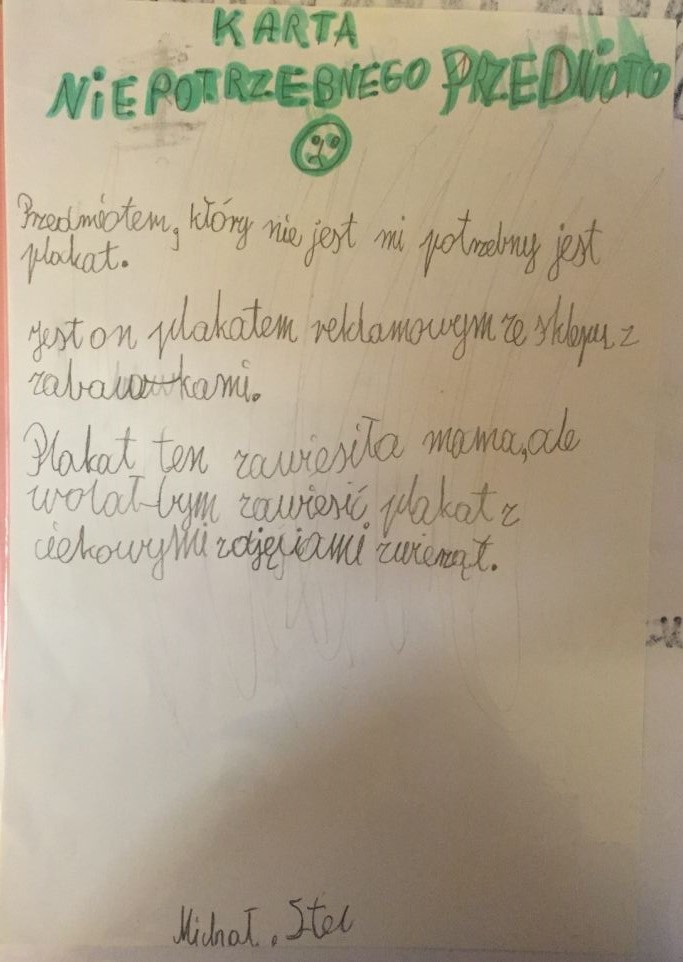 KARTA
NIEPOTRZEBNEGO PRZEDMIOTO
Przedmiotem, który nie jest mi potrzebny jest
plakat.
Jest on plakatem reklamowym ze sklepu z
zabawkami.
Plakat ten zawiesiła mama, ale
wolałbym zawiesić plakat z
ciekowymi zdjęciami zwierząt.
Michał. Stec